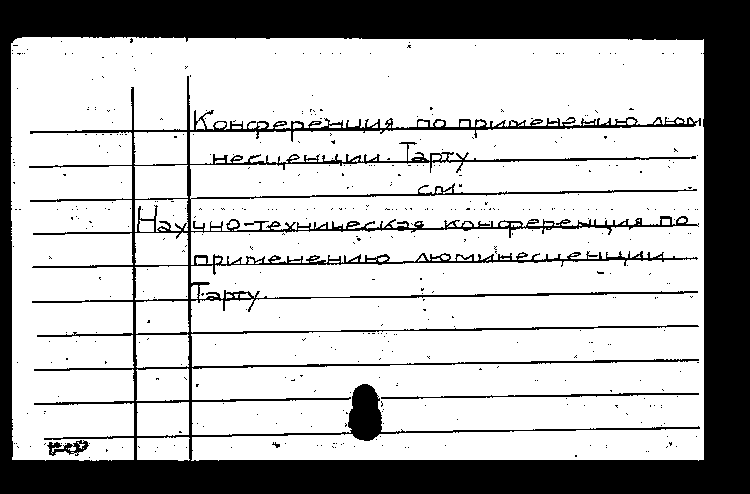 Конференция по применению люми
несценции. Тарту.
см:
Научно-техническая конференция по
применению люминесценции.
Тарту.